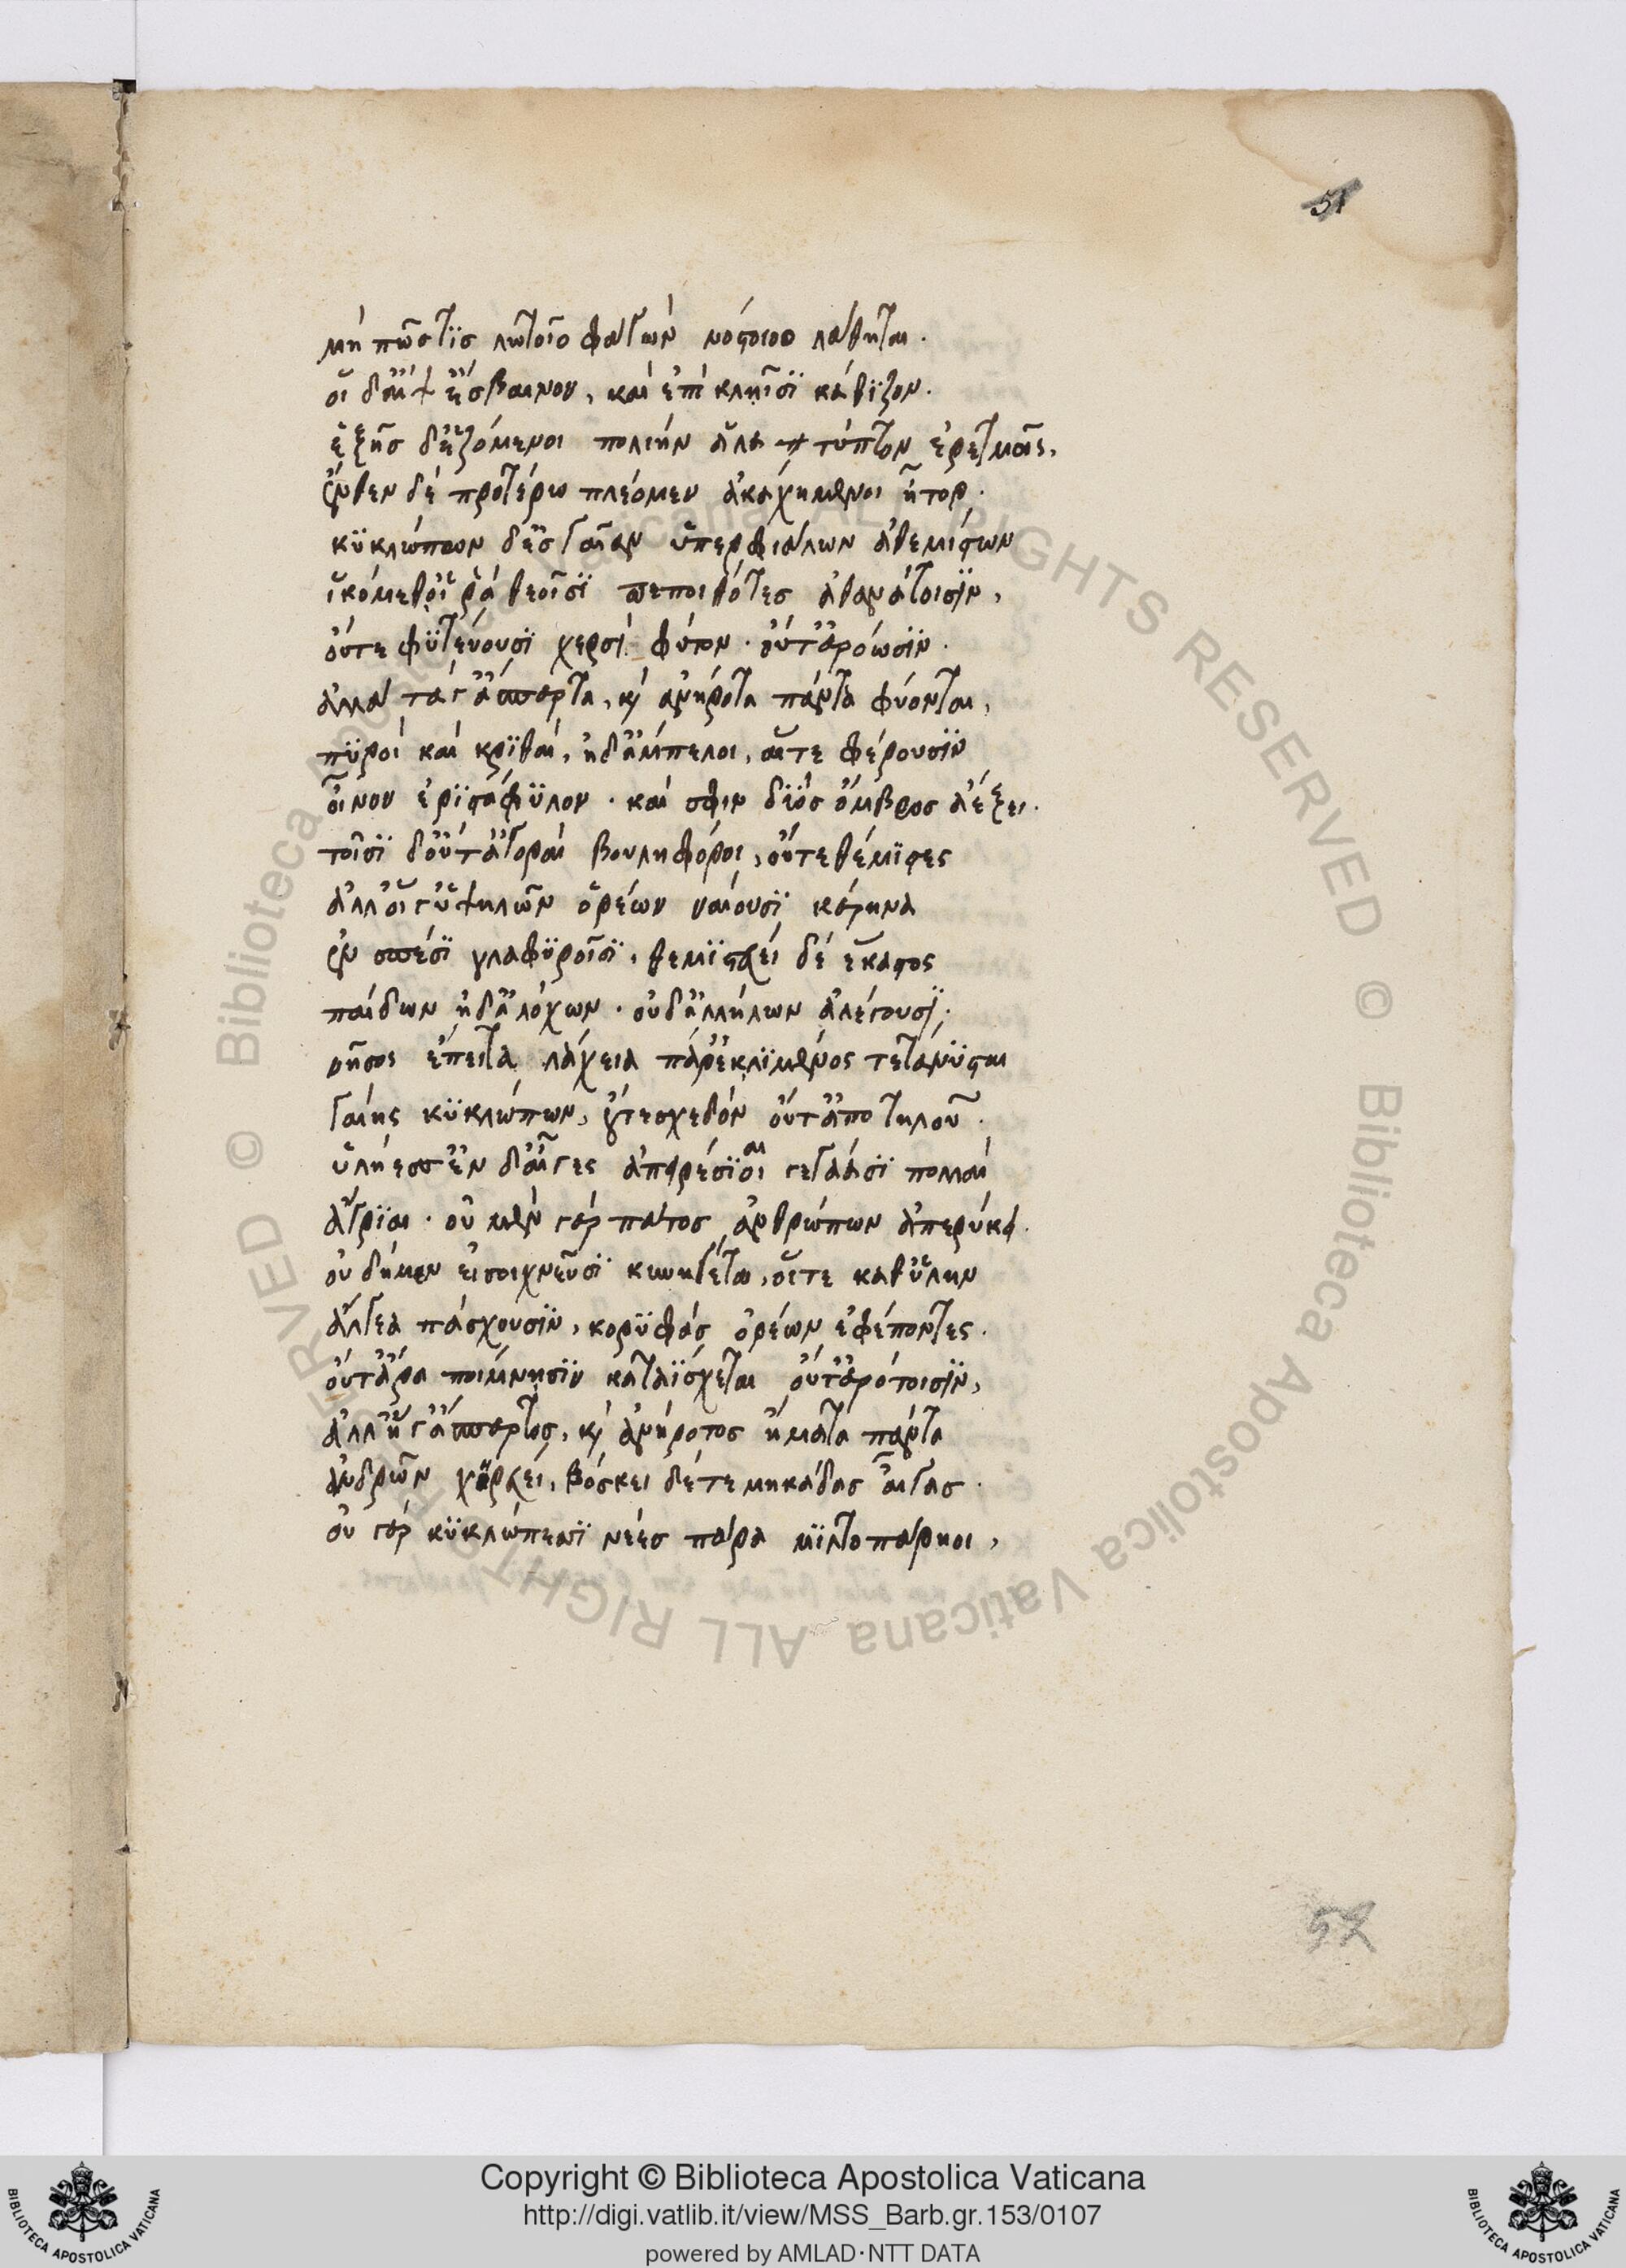 51
μή πῶς τίς λωτοῖο φαγὼν νόστοιο λάθηται.
οἱ δ' αἶψ' εἴσβαινον, καὶ ἐπὶ κληῖσι κάθιζον.
ἑξῆς δ' ἑζόμενοι πολιὴν ἅλα τύπτον ἐρετμοῖς.
ἔνθεν δὲ προτέρω πλέομεν ἀκαχήμενοι ἦτορ.
κυκλώπων δ' ἐς γαῖαν ὑπερφιάλων ἀθεμίστων
ἱκόμεθ' οἵ ῥα θεοῖσι πεποιθότες ἀθανάτοισιν,
οὔτε φυτεύουσι χερσὶ φυτὸν. οὔτ' ἀρόωσιν.
ἀλλὰ τά γ' ἄσπαρτα, καὶ ἀνήροτα πάντα φύονται,
πυροὶ καὶ κριθαὶ, ἠδ' ἄμπελοι, αἵτε φέρουσιν
οἶνον ἐριστάφυλον. καὶ σφιν διὸς ὄμβρος ἀέξει.
τοῖσι δ' οὔτ' ἀγοραὶ βουληφόροι, οὔτε θέμιστες
ἀλλ' οἵ γ' ὑψηλῶν ὀρέων ναίουσι κάρηνα
ἐν σπέσι γλαφυροῖσι, θεμιστεύει δὲ ἕκαστος
παίδων ἠδ' ἀλόχων. οὐδ' ἀλλήλων ἀλέγουσι.
νῆσος ἔπειτα λάχεια παρὲκ λιμένος τετάνυσται
γαίης κυκλώπων, οὔτε σχεδὸν οὔτ' ἀποτηλοῦ.
ὑλήεσσ' ἐν δ' αἶγες ἀπειρέσιαι γεγάασι πολλαὶ
ἄγριαι. οὐ μὲν γὰρ πάτος ἀνθρώπων ἀπερύκει.
οὐδέ μιν εἰσοιχνεῦσι κυνηγέται, οἵτε καθ' ὕλην
ἄλγεα πάσχουσιν, κορυφὰς ὀρέων ἐφέποντες.
οὔτ' ἄρα ποίμνῃσιν καταΐσχεται οὔτ' ἀρότοισιν,
ἀλλ' ἥ γ' ἄσπαρτος, καὶ ἀνήροτος ἤματα πάντα
ἀνδρῶν χηρεύει, βόσκει δέ τε μηκάδας αἶγας.
οὐ γὰρ κυκλώπεσσι νέες πάρα μιλτοπάρηοι,
52
Copyright © Biblioteca Apostolica Vaticana
http://digi.vatlib.it/view/MSS_Barb.gr.153/0107
powered by AMLAD·NTT DATA